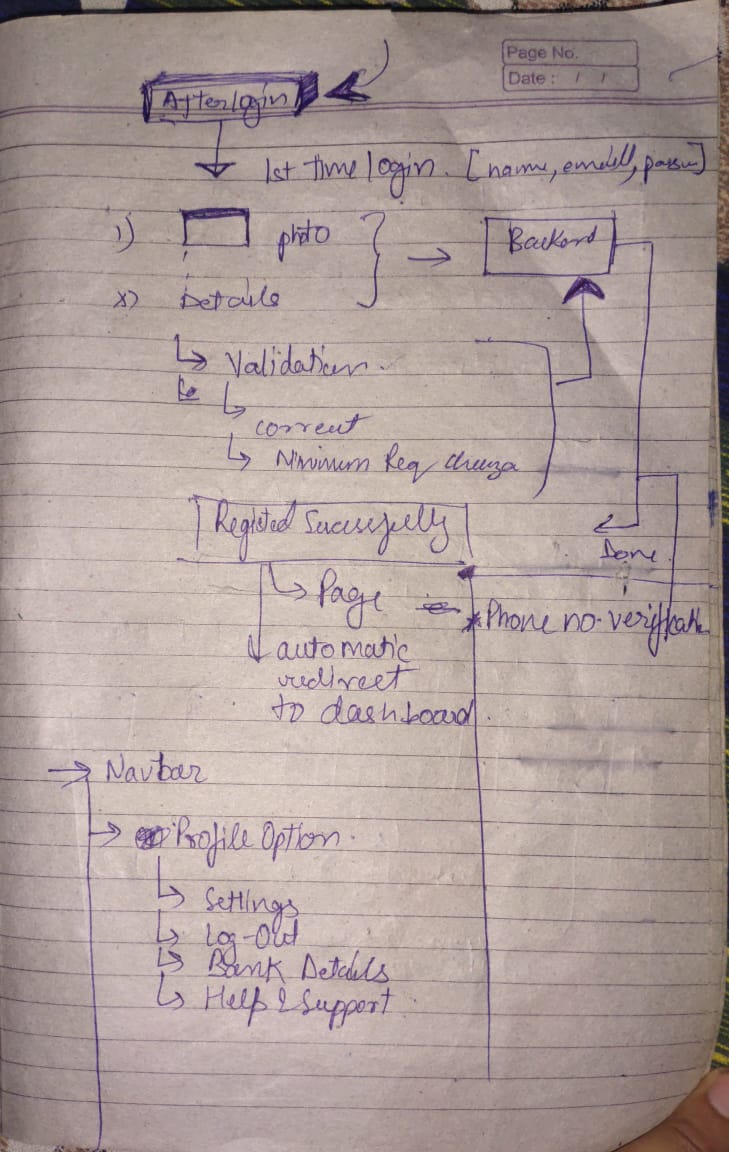 Page No.
Date : / /
After login
1st time login. [name, emaill, passw]
1) photo
Backend
2) Details
Validation.
correct
Minimum Req
Registed Sucessfully
Done
Page
* Phone no. verification
automatic
redirect
to dashboard.
Navbar
Profile Option.
Settings
Log-Out
Bank Details
Help & Support